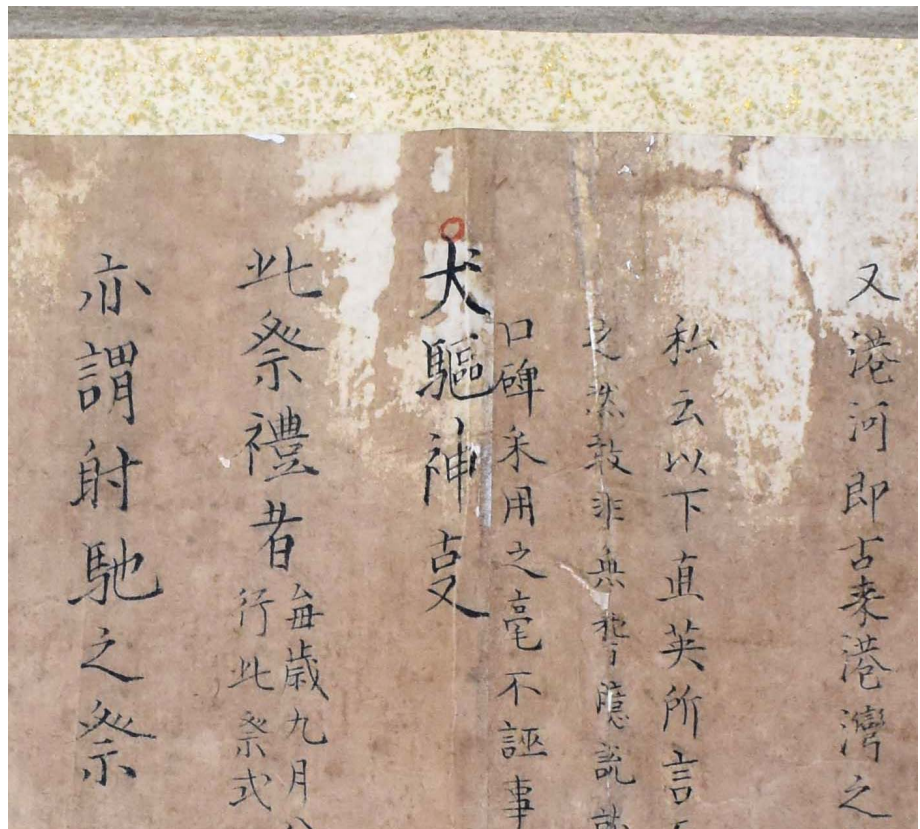 又港河即古来港灣之
私云以下直英所言
之然敢非無稽臆説
口碑采用之毫不誣事
犬驅神㕝
此祭禮者
毎歳九月
行此祭式
亦謂射馳之祭